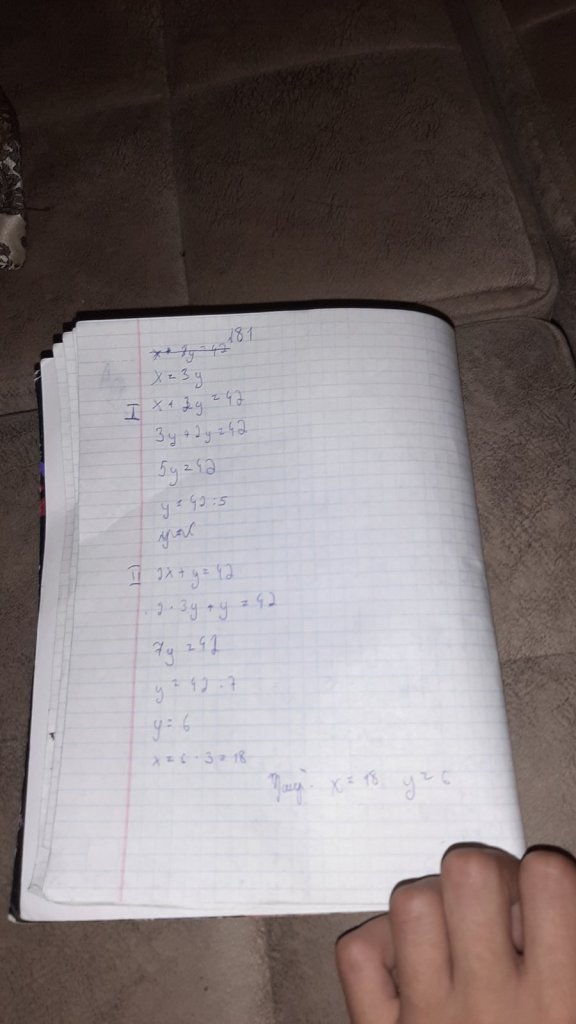 181
x = 3y
I x + 2y = 42
3y + 2y = 42
5y = 42
y = 42 : 5
II 2x + y = 42
2 · 3y + y = 42
7y = 42
y = 42 : 7
y = 6
x = 6 · 3 = 18
x = 18 y = 6